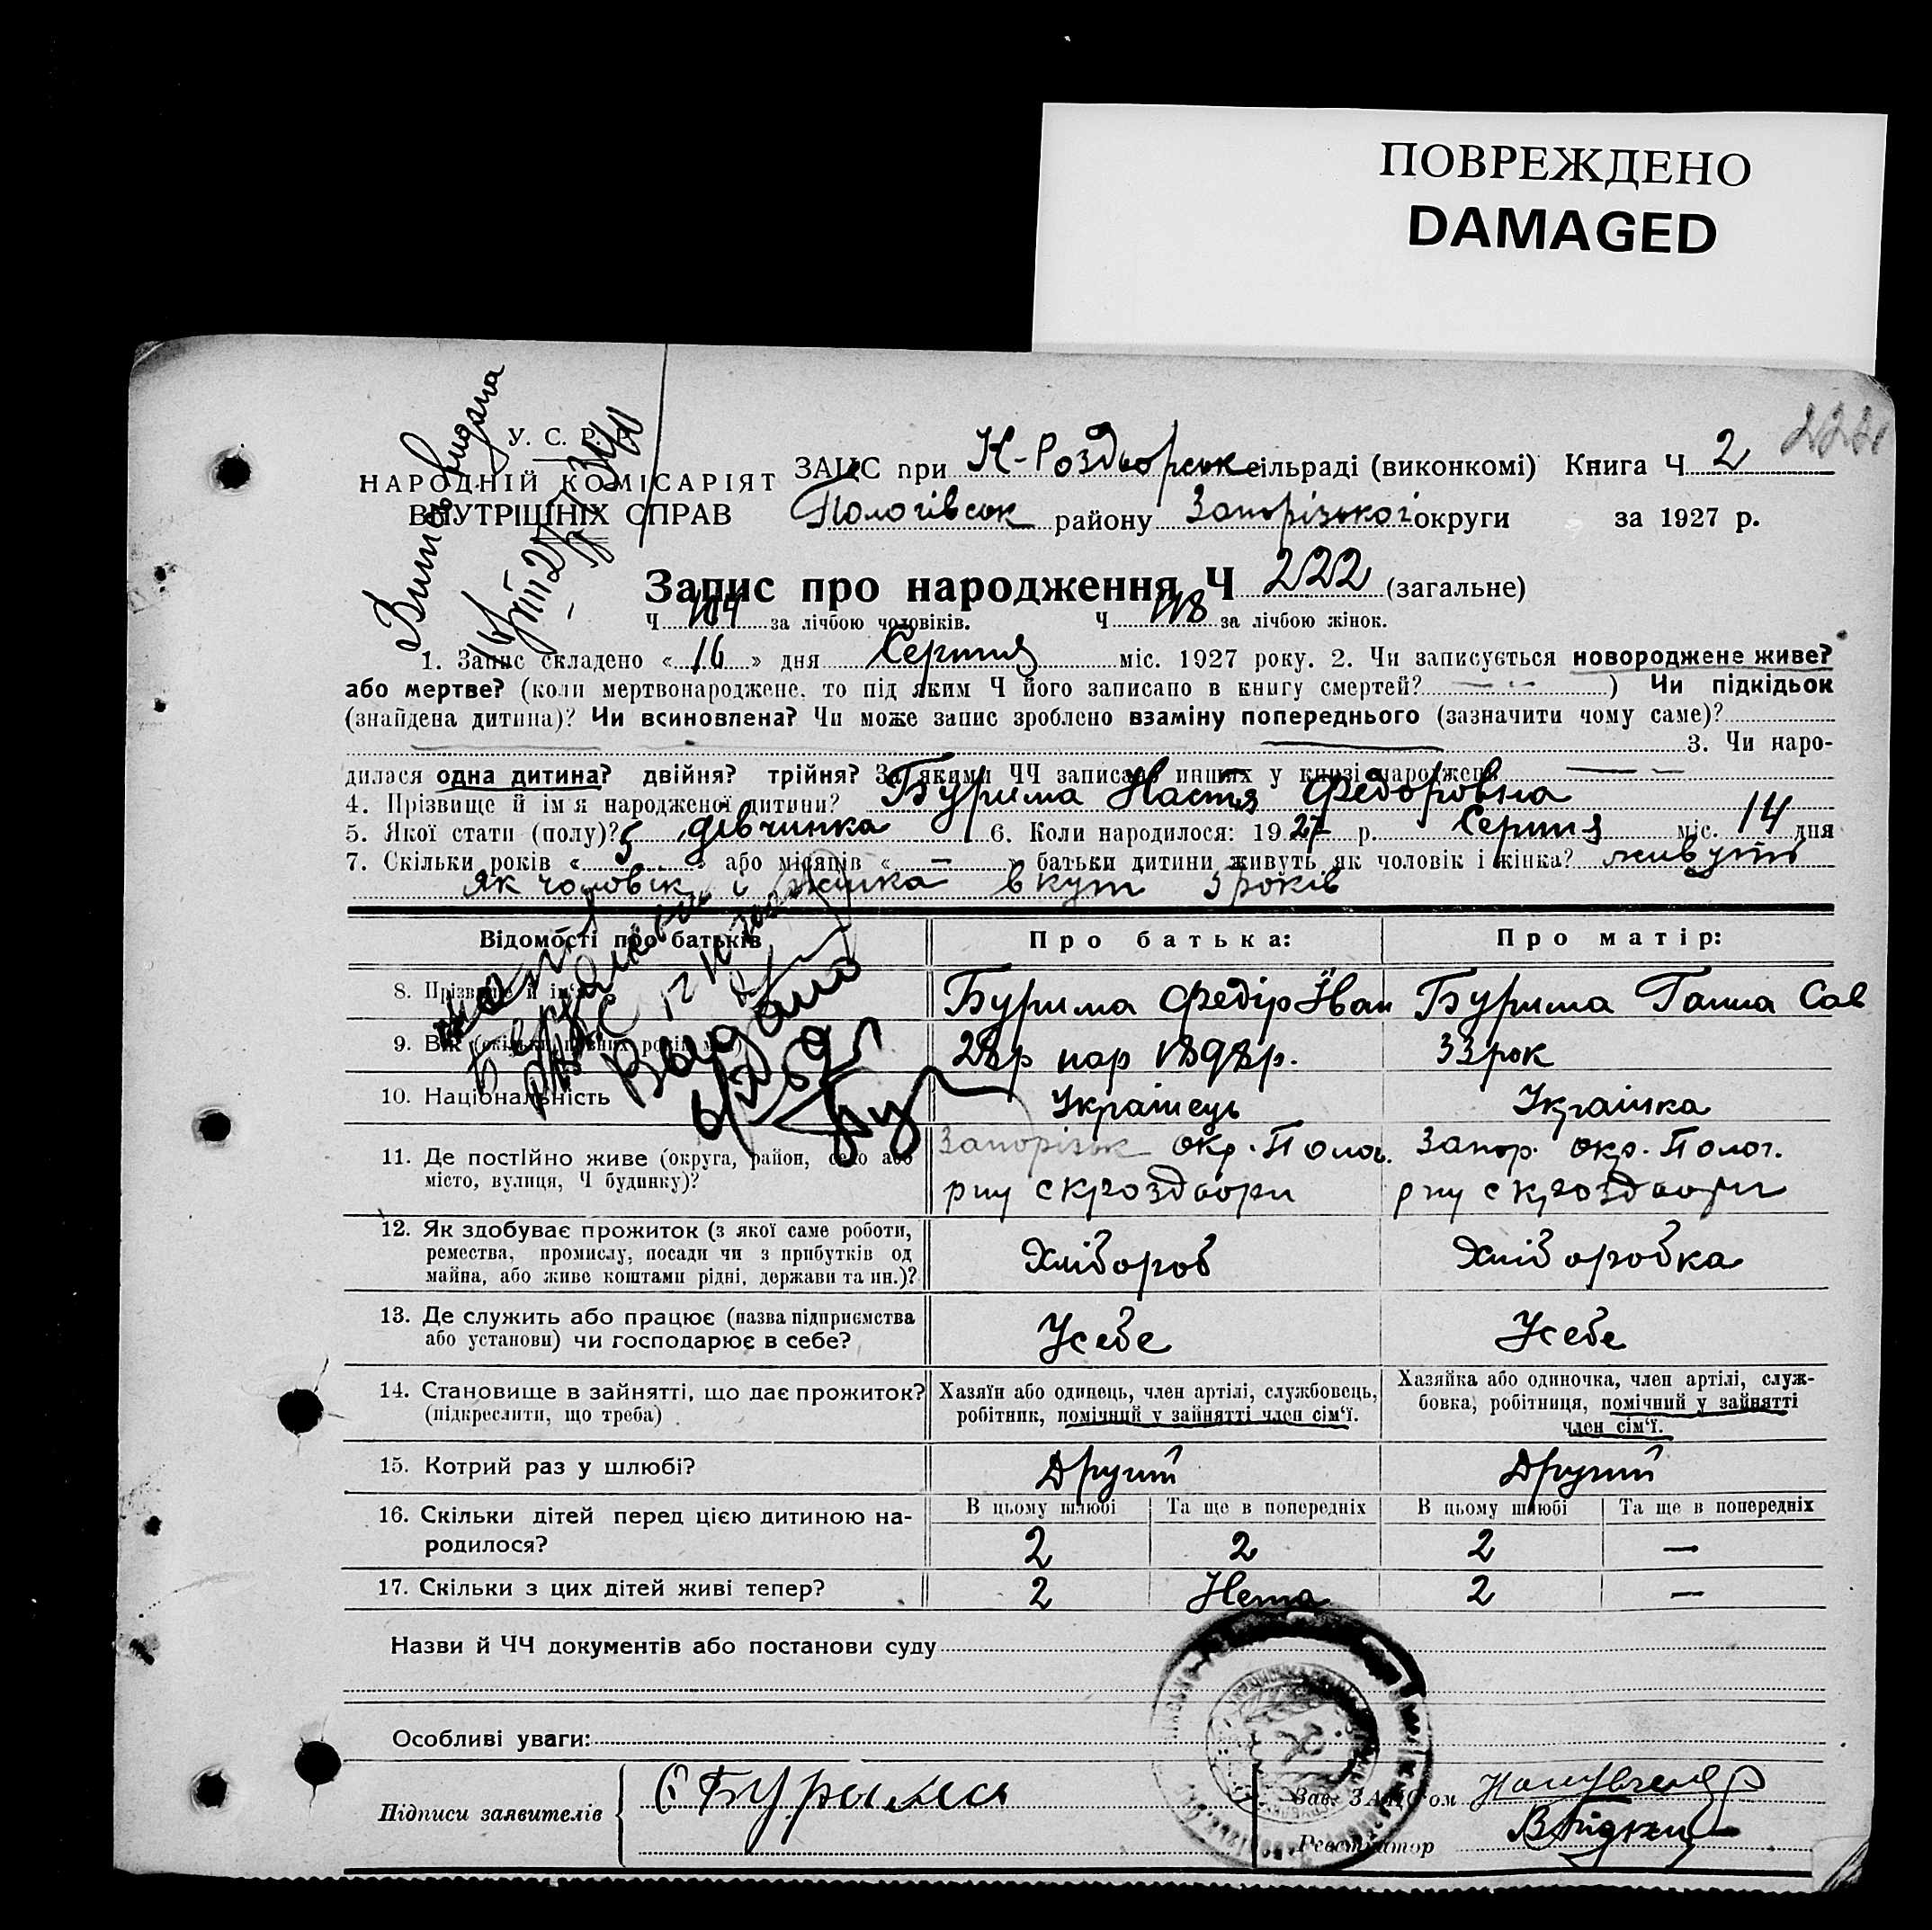 ПОВРЕЖДЕНО
DAMAGED
222
Витяг видана
У. С. Р. Р.
НАРОДНІЙ КОМІСАРІЯТ
ВНУТРІШНІХ СПРАВ
ЗАЦС при К-Роздорськ сільраді (виконкомі) Книга Ч 2
Пологівськ району Запорізької округи за 1927 р.
Запис про народження Ч 222 (загальне)
Ч 104 за лічбою чоловіків. Ч 118 за лічбою жінок.
1. Запис складено « 16 » дня Серпня міс. 1927 року. 2. Чи записується новороджене живе?
або мертве? (коли мертвонароджене, то під яким Ч його записано в книгу смертей? — —) Чи підкідьок
(знайдена дитина)? Чи всиновлена? Чи може запис зроблено взаміну попереднього (зазначити чому саме)?
3. Чи наро-
дилася одна дитина? двійня? трійня? За якими ЧЧ записано инших у книзі народжень — —
4. Прізвище й ім'я народженої дитини? Бурима Настя Федоровна
5. Якої стати (полу)? дівчинка 6. Коли народилося: 1927 р. Серпня міс. 14 дня
7. Скільки років « 5 » або місяців « — » батьки дитини живуть як чоловік і жінка? живуть
як чоловік і жинка вкупі 5 років
Відомості про батьків Про батька: Про матір:
8. Прізвище й ім'я Бурима Федір Іван Бурима Ганна Сав
9. Вік 28р нар 1898р. 33 рок
10. Національність Українець Українка
11. Де постійно живе (округа, район, село або Запорізьк окр. Полог. Запор. окр. Полог.
місто, вулиця, Ч будинку)? рну с Кроздори рну с Кроздори
12. Як здобуває прожиток (з якої саме роботи,
ремества, промислу, посади чи з прибутків од Хлібороб Хліборобка
майна, або живе коштами рідні, держави та ин.)?
13. Де служить або працює (назва підприємства
або установи) чи господарює в себе? Усебе Усебе
14. Становище в зайнятті, що дає прожиток? Хазяїн або одинець, член артілі, службовець, Хазяйка або одиночка, член артілі, служ-
(підкреслити, що треба) робітник, помічний у зайнятті член сім'ї. бовка, робітниця, помічний у зайнятті
член сім'ї.
15. Котрий раз у шлюбі? Другий Другий
16. Скільки дітей перед цією дитиною на- В цьому шлюбі Та ще в попередніх В цьому шлюбі Та ще в попередніх
родилося? 2 2 2 —
17. Скільки з цих дітей живі тепер? 2 Нема 2 —
Назви й ЧЧ документів або постанови суду
Особливі уваги:
Підписи заявителів Бурыма Зав. ЗАЦС'ом
Реєстратор